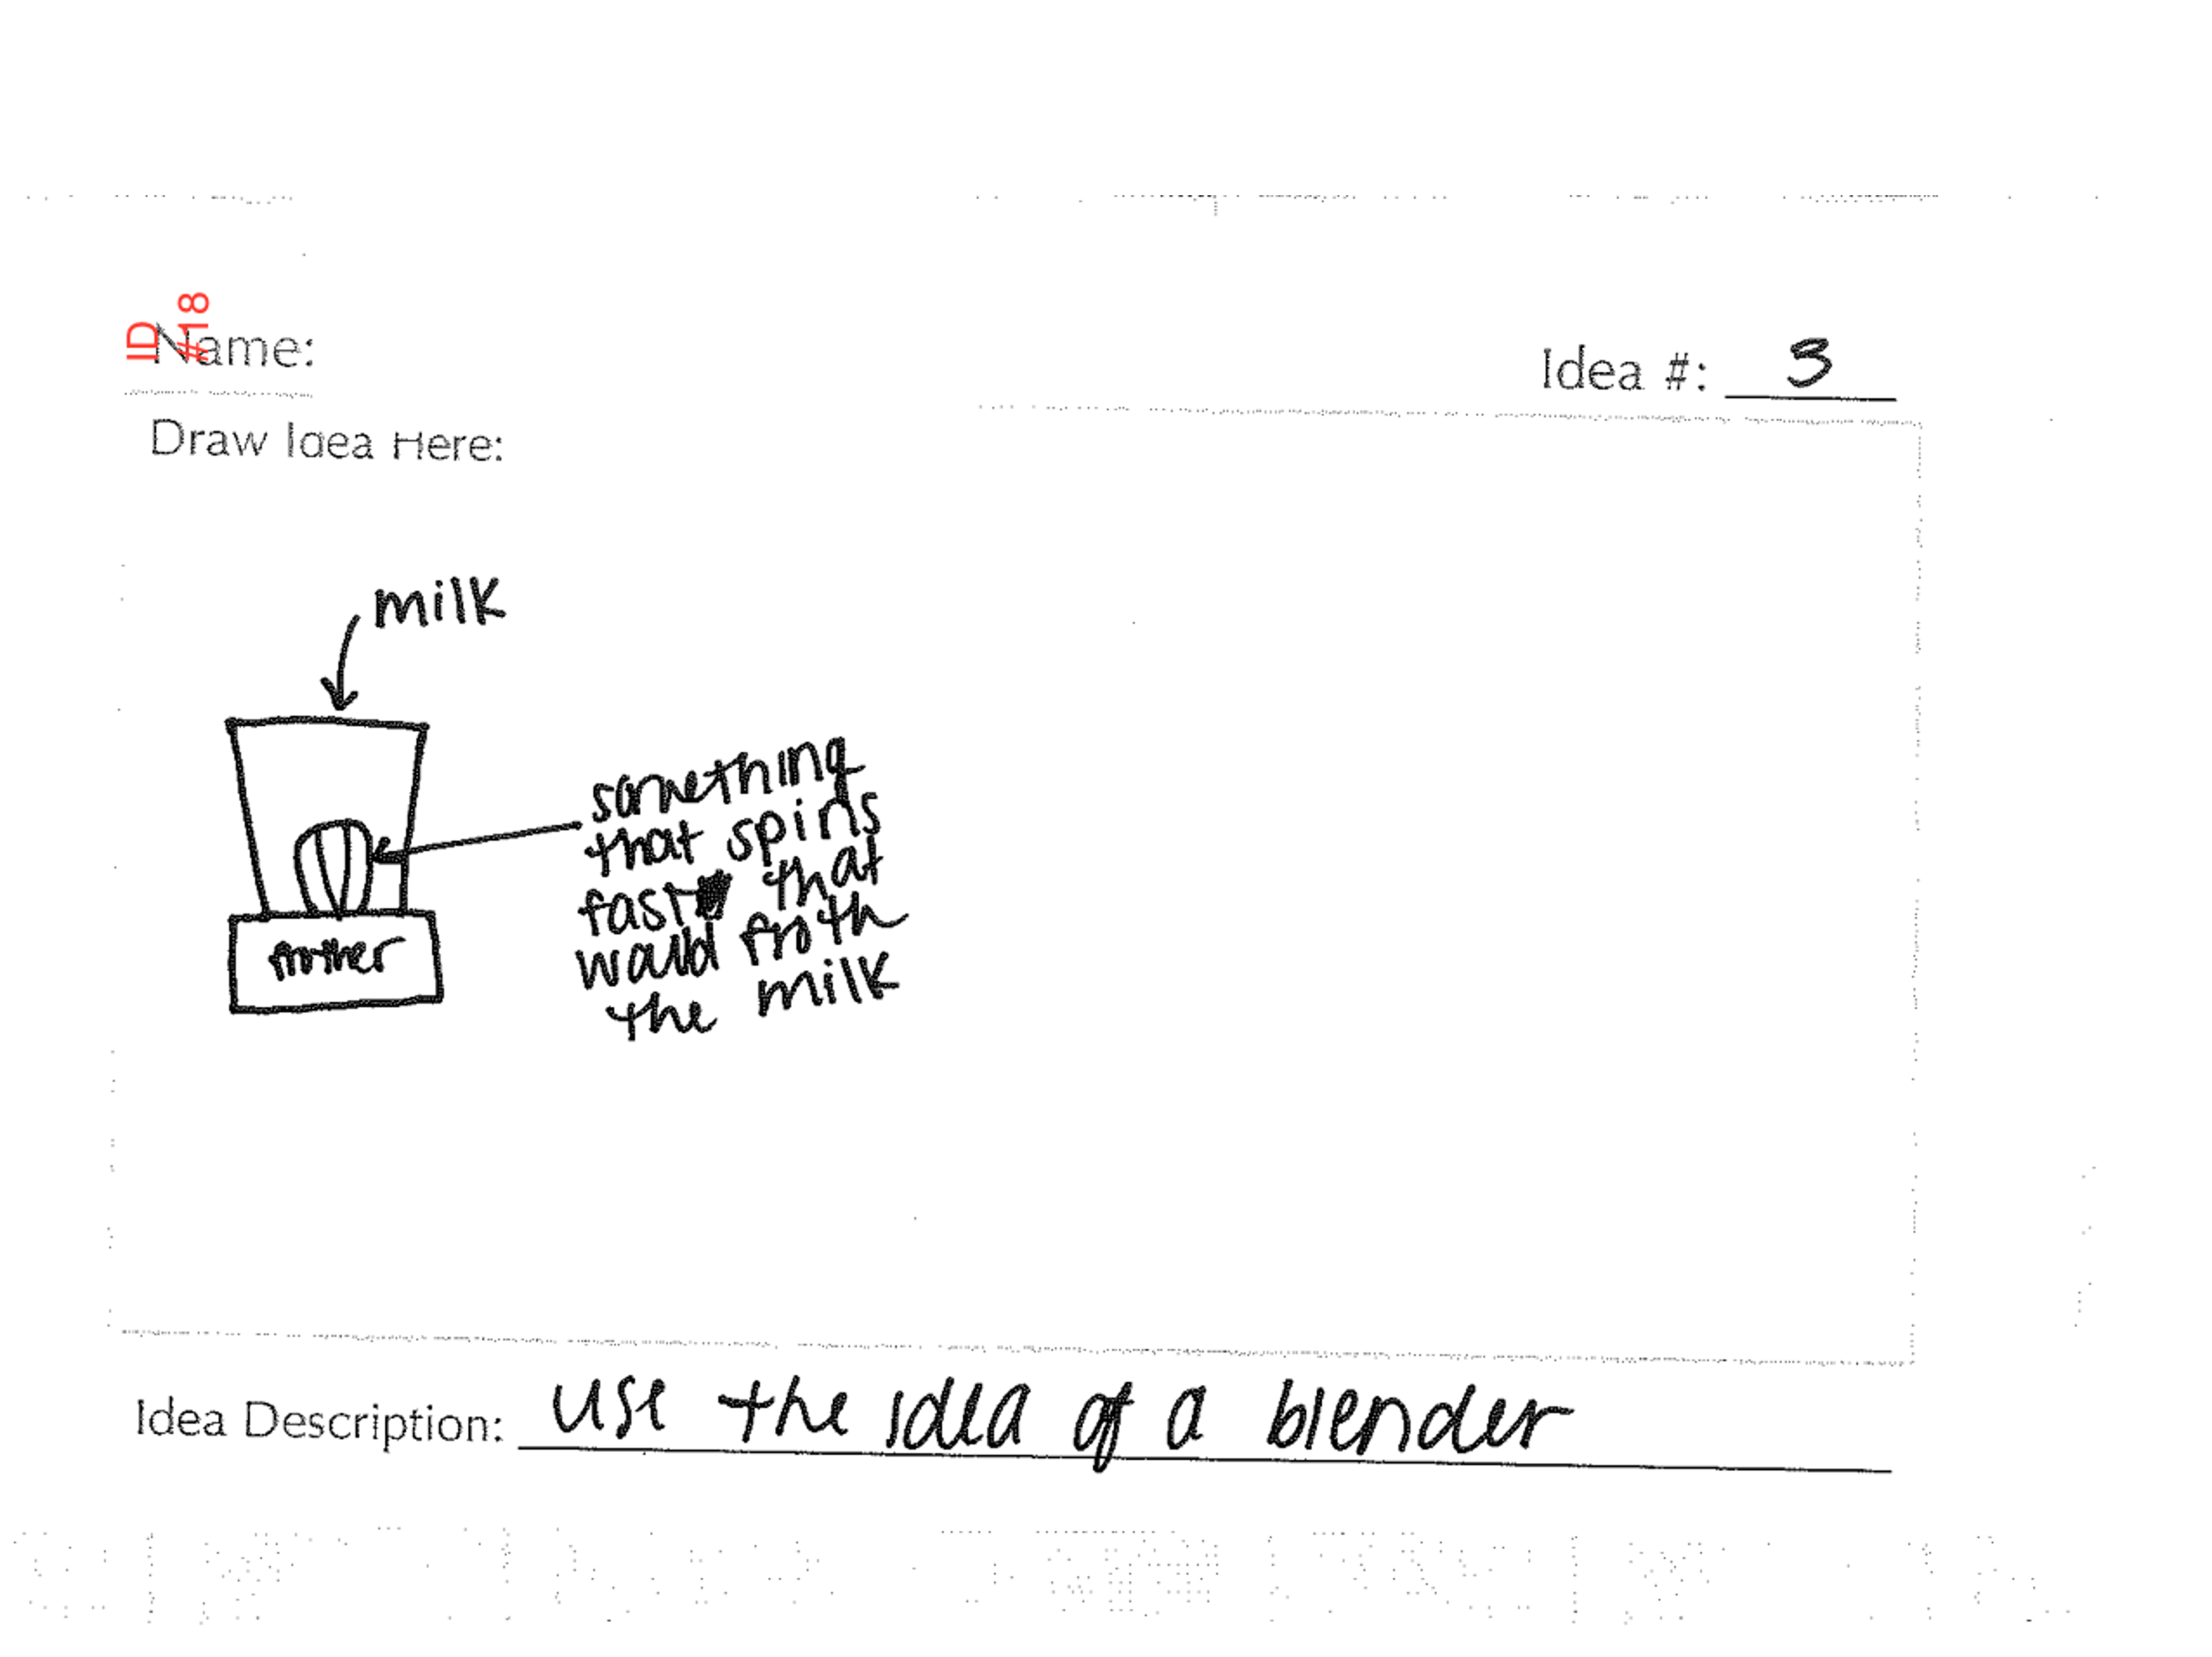 ID
#18
Name:
Idea #: 3
Draw Idea Here:
milk
something
that spins
fast that
would froth
the milk
frother
Idea Description: use the idea of a blender